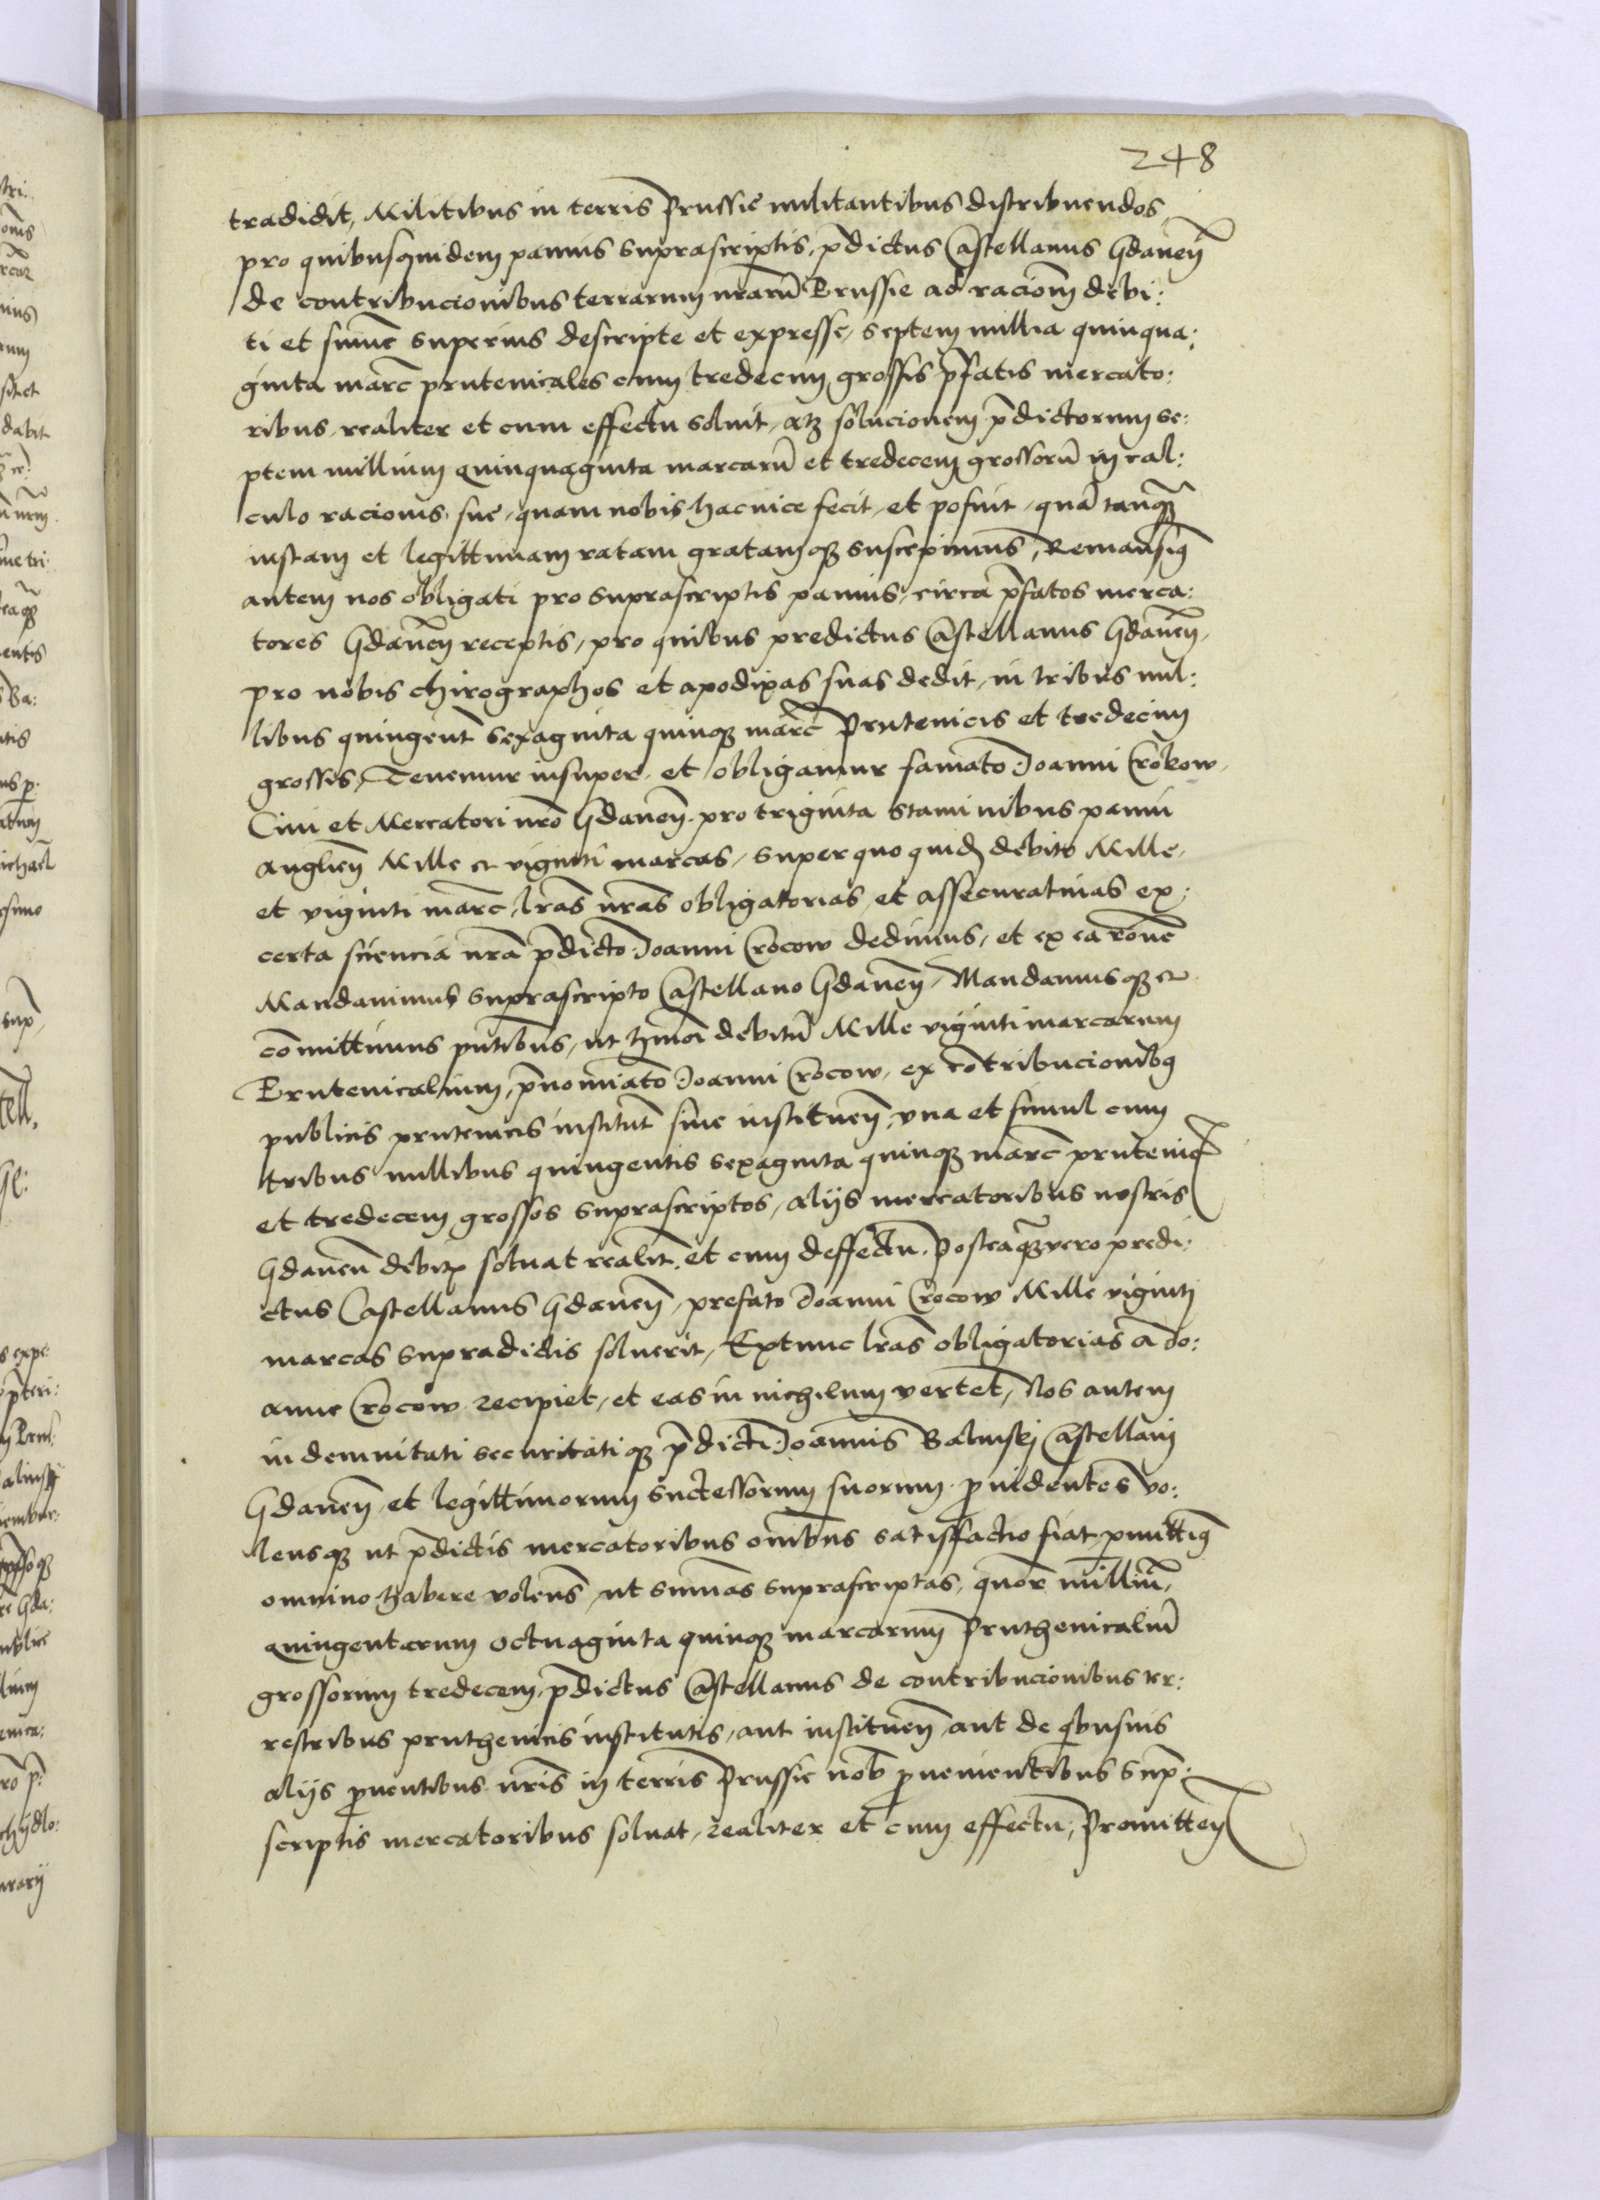 248
tradidit, Militibus in terris Prussie militantibus distribuendos,
pro quibusquidem pannis suprascriptis, p̄dictus Castellanus Gdaneñ
de contribucionibus terrarum nrarū Prussie ad racioēm debi:
ti et sum̄e superius descripte et expresse, septem millia quinqua:
ginta marc̄ prutenicales cum tredecim grossis p̄fatis mercato:
ribus realiter et cum effectu soluit, atq solucionem p̄dictorum se:
ptem millium quinquaginta marcarū et tredecem grossorū in cal:
culo racionis sue, quam nobis hac vice fecit, et posuit, quā tanq̄
iustam et legittimam ratam gratamq suscepimus, Remansimꝰ
autem nos obligati pro suprascriptis pannis, circa p̄fatos merca:
tores Gdaneñ receptis, pro quibus predictus Castellanus Gdaneñ,
pro nobis chirographos et apodixas suas dedit, in tribus mil:
libus quingent̄ sexaginta quinq marc̄ Prutenicis et tredecim
grossis, Tenemur insuper et obligamur famato Joanni Crokow,
Ciui et Mercatori nr̄o Gdaneñ pro triginta staminibus panni
anglieñ Mille et viginti marcas, super quo quid debito Mille,
et viginti marc̄, lr̄as nr̄as obligatorias et assecuratiuas ex
certa sciencia nr̄a p̄dicto Joanni Crocow dedimus, et ex ea rōne
Mandauimus suprascripto Castellano Gdaneñ, Mandamusq et
cōmittimus pn̄tibus, ut hmōi debitū Mille viginti marcarum
Prutenicalium, p̄nomiāto Joanni Crocow, ex cōtribucionibꝰ
publicis prutenicis institut̄ siue instituen̄, vna et simul cum
tribus millibus quingentis sexaginta quinq marc̄ prutenic̄
et tredecem grossos suprascriptos, alijs mercatoribus nostris
Gdaneñ debitꝭ soluat realit̄ et cum deffectu. Posteaq̄ vero predi:
ctus Castellanus Gdaneñ, prefato Joanni Crocow Mille viginti
marcas supradictis soluerit, Extunc lr̄as obligatorias a Jo:
anne Crocow recipiet, et eas in nichilum vertet, Nos autem
indemnitati securitatiq p̄dicti Joannis Balinskj Castellani
Gdaneñ et legittimorum successorum suorum prouidentes vo:
lensq ut p̄dictis mercatoribus om̄ibus satisffactio fiat p̄mittimꝰ
omnino habere volens, ut sum̄as suprascriptas, quor̄ millium,
quingentarum octuaginta quinq marcarum Pruthenicaliū
grossorum tredecem, p̄dictus Castellanus de contribucionibus ter:
restribus pruthenicis institutis, aut instituen̄, aut de qbusuis
alijs prouentibus nr̄is in terris Prussie nob̄ prouenientibus sup̄:
scriptis mercatoribus soluat, realiter et cum effectu, Promitteñ